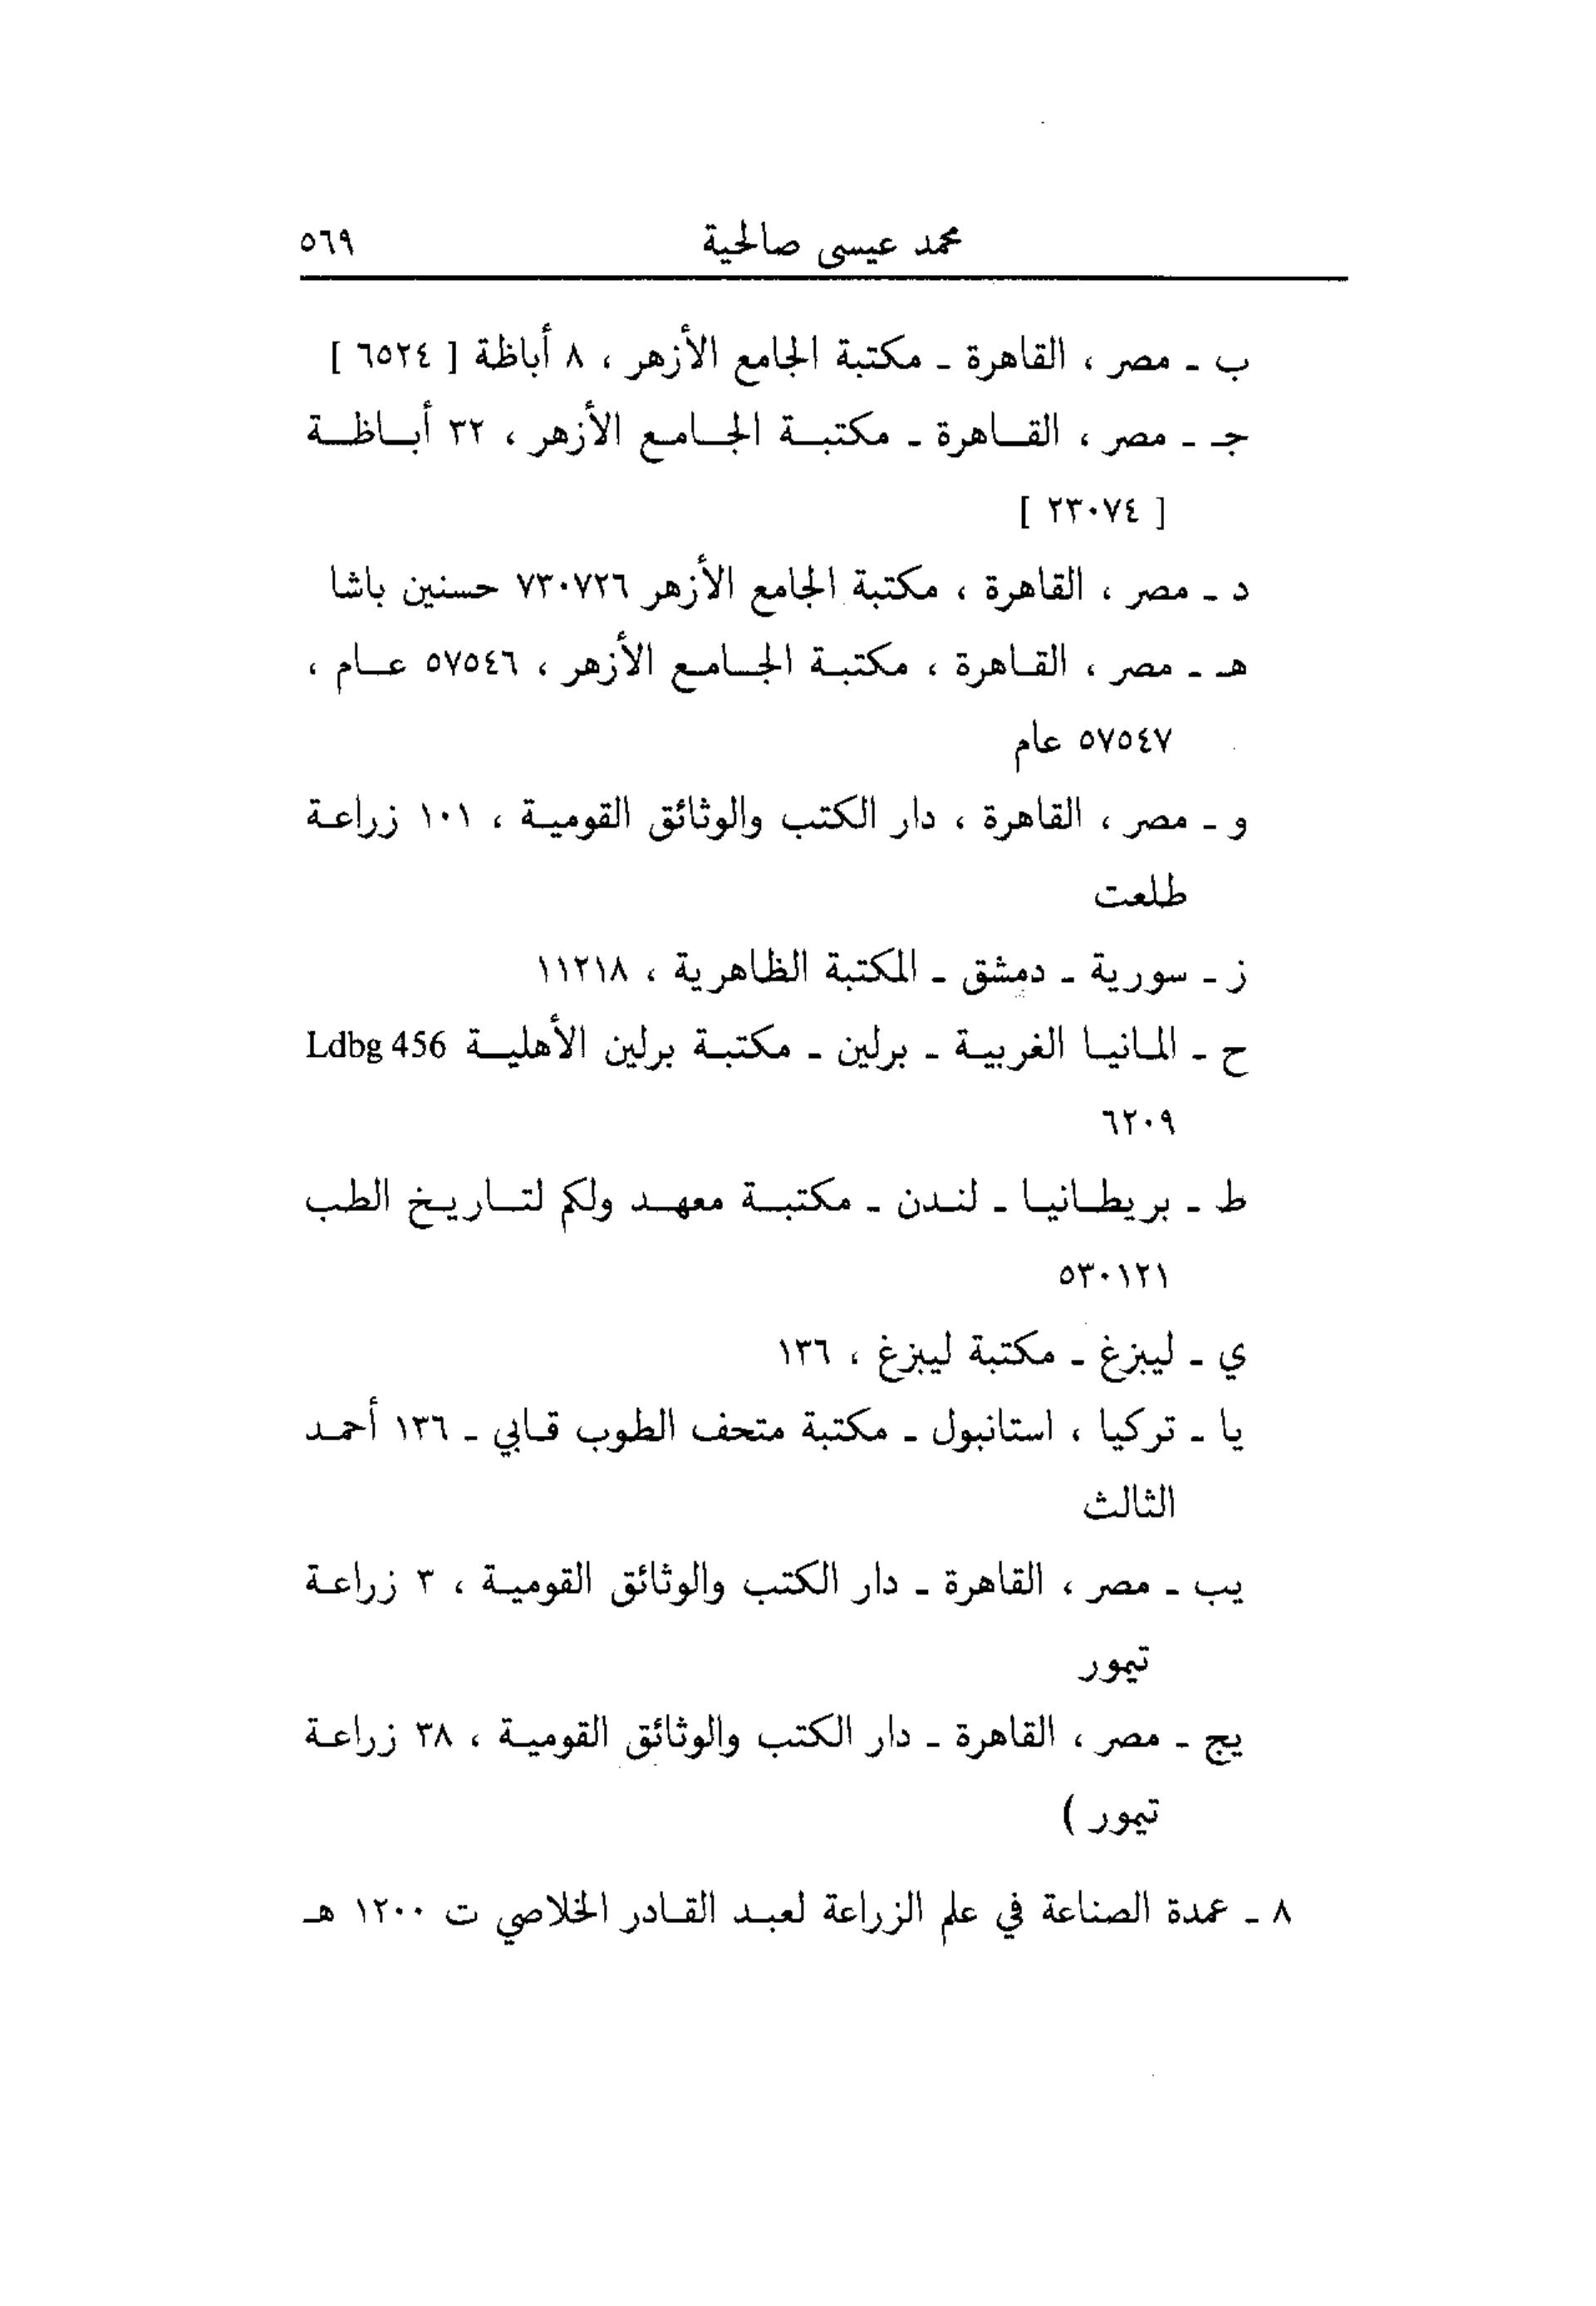 محمد عيسى صالحية ٥٦٩
ب - مصر ، القاهرة - مكتبة الجامع الأزهر ، ٨ أباظة [ ٦٥٢٤ ]
جـ - مصر ، القاهرة - مكتبة الجامع الأزهر ، ٣٢ أباظة
[ ٢٣٠٧٤ ]
د - مصر ، القاهرة ، مكتبة الجامع الأزهر ٧٣٠٧٢٦ حسنين باشا
هـ - مصر ، القاهرة ، مكتبة الجامع الأزهر ، ٥٧٥٤٦ عام ،
٥٧٥٤٧ عام
و - مصر ، القاهرة ، دار الكتب والوثائق القومية ، ١٠١ زراعة
طلعت
ز - سورية - دمشق - المكتبة الظاهرية ، ١١٢١٨
ح - المانيا الغربية - برلين - مكتبة برلين الأهلية Ldbg 456
٦٢٠٩
ط - بريطانيا - لندن - مكتبة معهد ولكم لتاريخ الطب
٥٣٠١٢١
ي - ليبزغ - مكتبة ليبزغ ، ١٣٦
يا - تركيا ، استانبول - مكتبة متحف الطوب قابي - ١٣٦ أحمد
الثالث
يب - مصر ، القاهرة - دار الكتب والوثائق القومية ، ٣ زراعة
تيمور
يج - مصر ، القاهرة - دار الكتب والوثائق القومية ، ٣٨ زراعة
تيمور )
٨ - عمدة الصناعة في علم الزراعة لعبد القادر الخلاصي ت ١٢٠٠ هـ